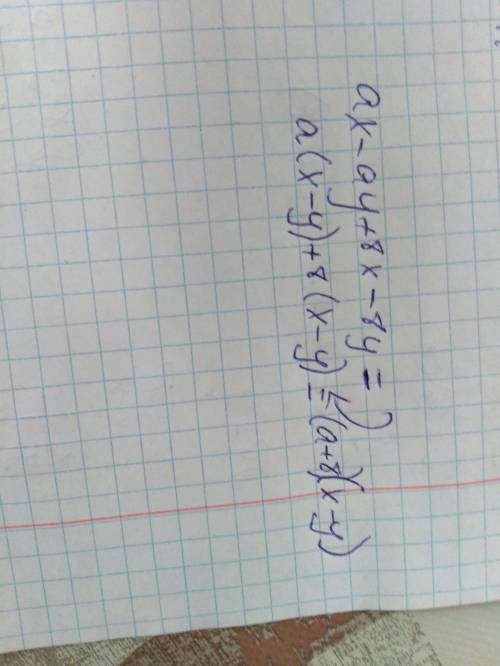 ax-ay+8x-8y=
a(x-y)+8(x-y)=(a+8)(x-y)